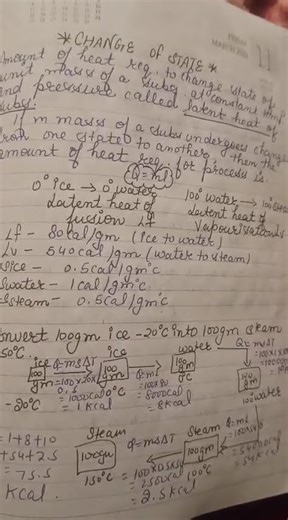 FRIDAY
MARCH
11
* CHANGE of STATE *
Amount of heat req. to change state of
unit mass of a subs at constant temp
and pressure called latent heat of
subs.
If m mass of a subs undergoes change
from one state to another, then the
amount of heat req. for process is
Q = mL
0° ice → 0° water
Latent heat of
fusion Lf
100° water → 100°
Latent heat of
Vapourisation
Lf - 80 cal/gm (ice to water)
Lv - 540 cal/gm (water to steam)
Sice - 0.5 cal/gm°C
Swater - 1 cal/gm°C
Ssteam - 0.5 cal/gm°C
convert 100gm ice -20°C into 100gm steam
150°C.
ice
100
gm
-20°C
Q=msΔT
=100x20x
0.5
=1000 cal
= 1 kcal
ice
100
gm
0°C
Q=ml
=100x80
=8000 cal
=8 kcal
water
100
gm
0°C
Q=msΔT
100
gm
100°
water
Q=ml
Steam
100gm
100°C
Q=msΔT
=100x0.5x50
=2500 cal
= 2.5 kcal
Steam
100gm
150°C
=54 kcal
= 1+8+10
+54+2.5
= 75.5
Kcal.